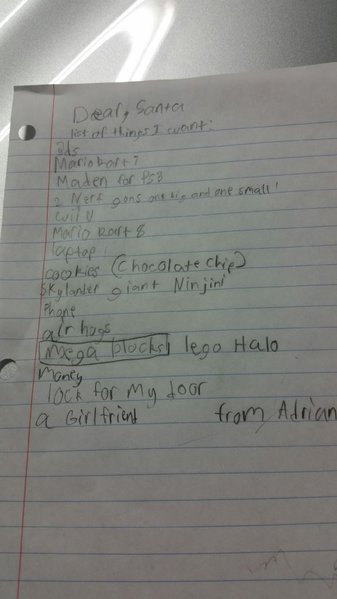 Dear, Santa
list of things I want:
3ds
Mario kart 7
Maden for PS3
2 Nerf gons one big and one small!
wii U
Mario kart 8
laptop
cookies (Chocolate chip)
Skylander giant Ninjini
Phone
air hogs
Mega blocks lego Halo
Money
lock for my door
a Girlfriend from Adrian